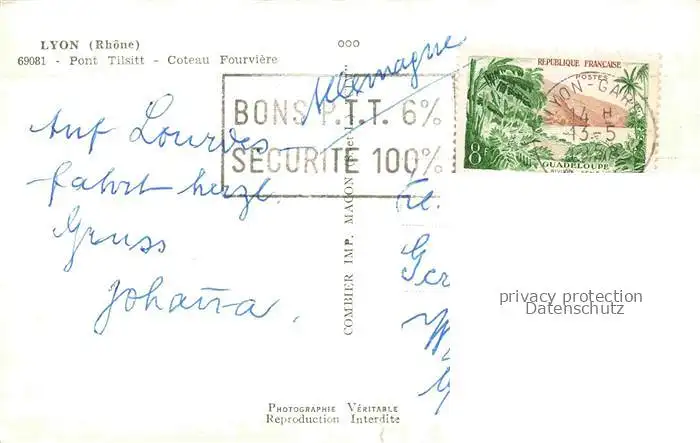 LYON (Rhône)
69081 - Pont Tilsitt - Coteau Fourvière
Allemagne
BONS P.T.T. 6%
SÉCURITÉ 100%
RÉPUBLIQUE FRANÇAISE
POSTES
LYON-GARE
14 H
13-5
8F
GUADELOUPE
Auf Lourdes-
fahrt herzl.
Gruss
Johanna.
COMBIER IMP. MACON
privacy protection
Datenschutz
PHOTOGRAPHIE VÉRITABLE
Reproduction Interdite